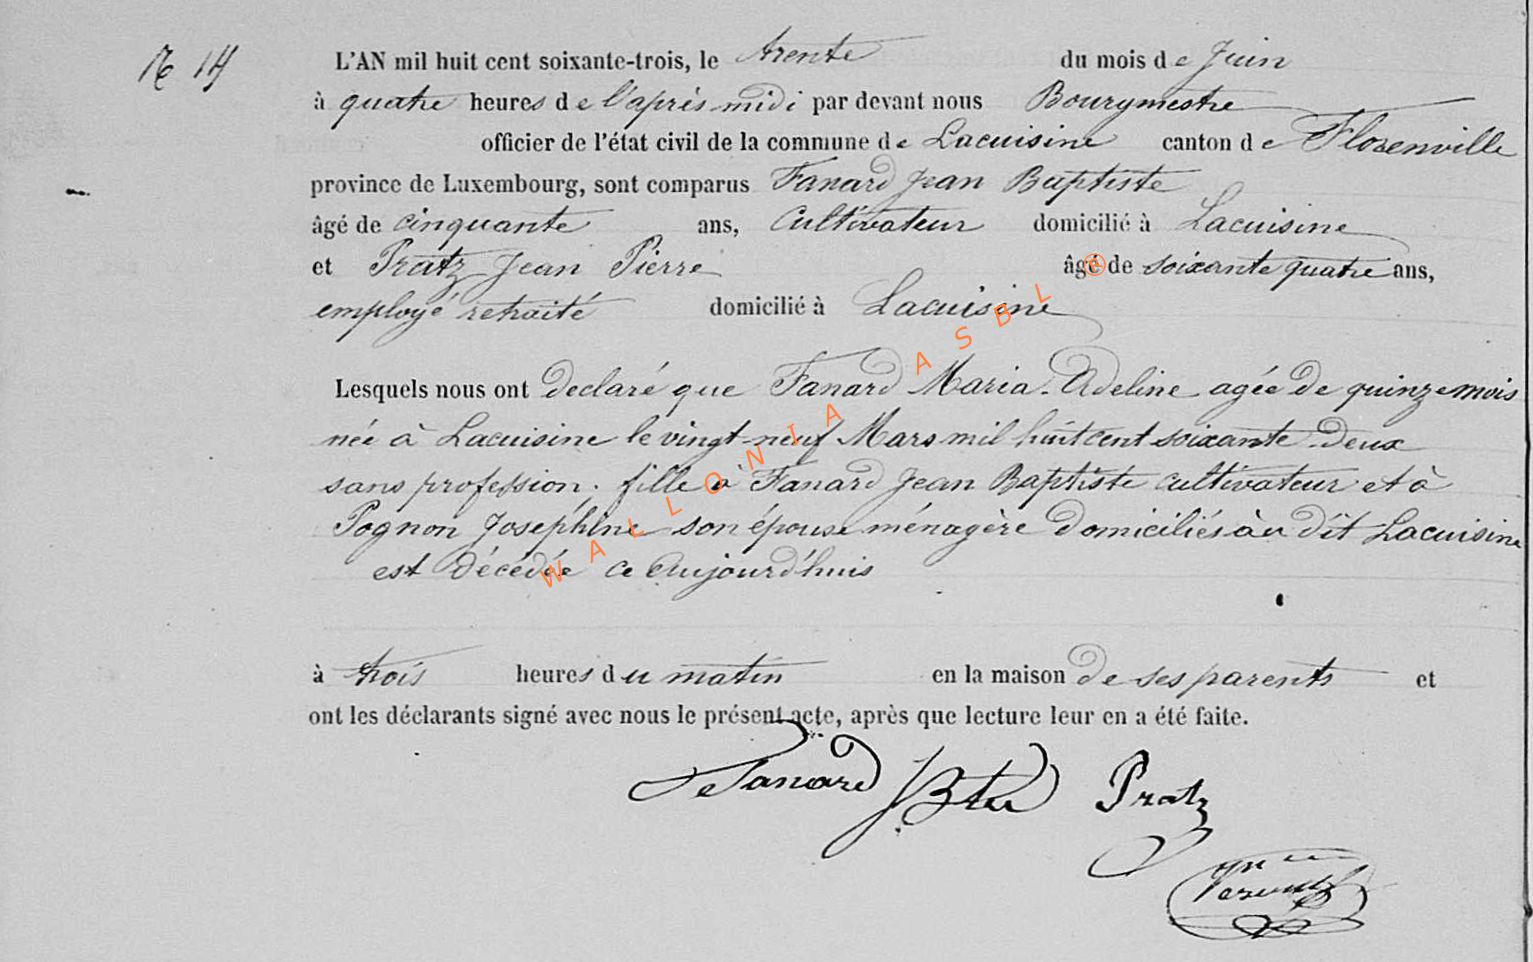 N° 14
L'AN mil huit cent soixante-trois, le trente du mois de Juin
à quatre heures de l'après midi par devant nous Bourgmestre
officier de l'état civil de la commune de Lacuisine canton de Florenville
province de Luxembourg, sont comparus Fanard Jean Baptiste
âgé de cinquante ans, Cultivateur domicilié à Lacuisine
et Pratz Jean Pierre âgé de soixante quatre ans,
employé retraité domicilié à Lacuisine
Lesquels nous ont declaré que Fanard Maria-Adeline agée de quinze mois
née à Lacuisine le vingt-neuf Mars mil huit cent soixante-deux
sans profession. fille à Fanard Jean Baptiste cultivateur et à
Pognon Joséphine son épouse ménagère domiciliés au dit Lacuisine
est décédée ce aujourd'huis
à trois heures du matin en la maison de ses parents et
ont les déclarants signé avec nous le présent acte, après que lecture leur en a été faite.
Fanard JBte Pratz
WALLONIA ASBL ®